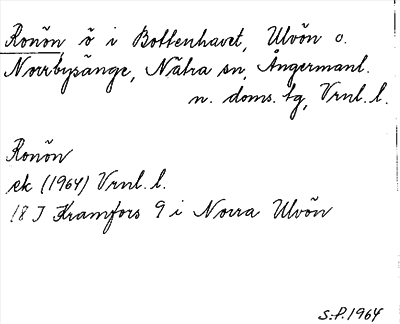 Ronön, ö i Bottenhavet, Ulvön o.
Norrbysänge, Nätra sn, Ångermanl.
n. doms. tg, Vrnl. l.
Ronön
ek (1964) Vrnl. l.
18 J Kramfors 9 i Norra Ulvön
S.P. 1964